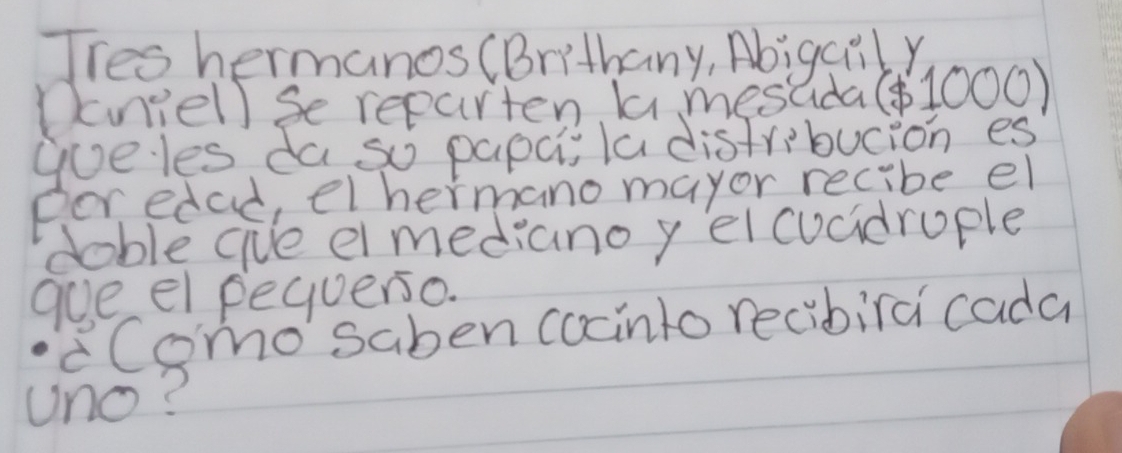 Tres hermanos (Brithany, Abigail y
Daniel) se reparten la mesada ($1000)
que les da su papá; la distribución es
por edad, el hermano mayor recibe el
doble que el mediano y el cuádruple
que el pequeño.
• ¿Cómo saben cuánto recibirá cada
uno?